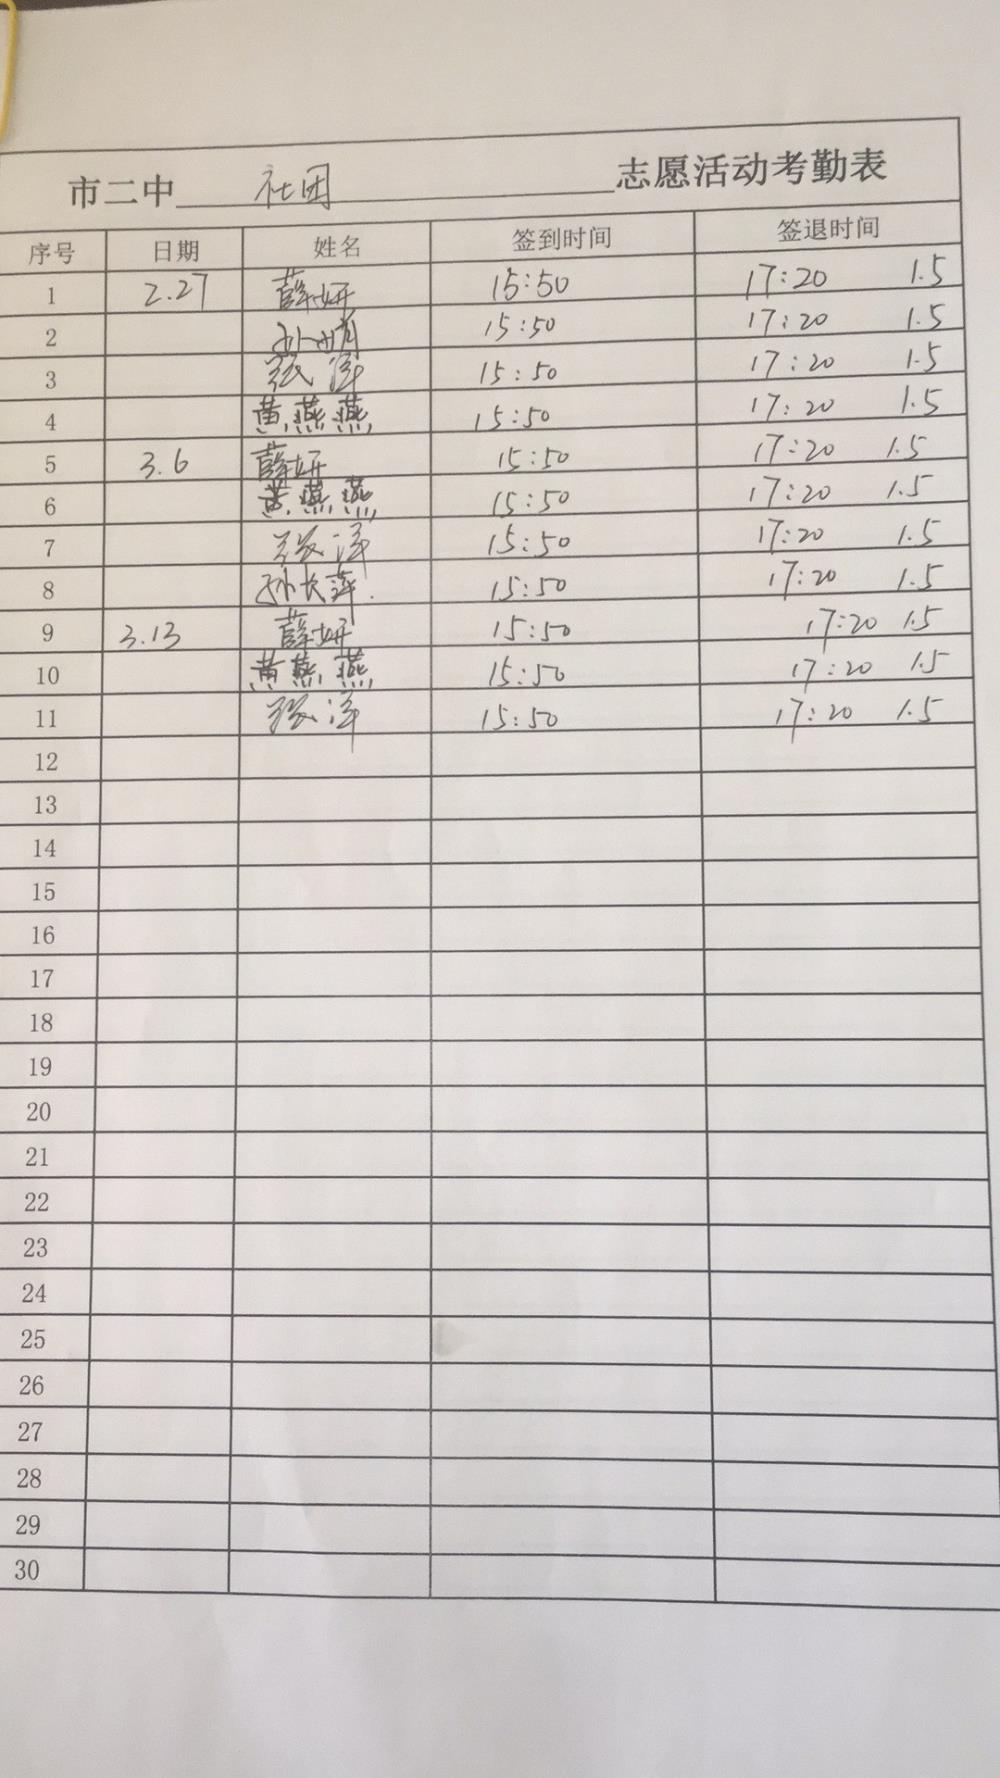 市二中 社团 志愿活动考勤表
序号 日期 姓名 签到时间 签退时间
1 2.27 薛妍 15:50 17:20 1.5
2 15:50 17:20 1.5
3 张萍 15:50 17:20 1.5
4 黄燕燕 15:50 17:20 1.5
5 3.6 薛妍 15:50 17:20 1.5
6 黄燕燕 15:50 17:20 1.5
7 张萍 15:50 17:20 1.5
8 孙长萍 15:50 17:20 1.5
9 3.13 薛妍 15:50 17:20 1.5
10 黄燕燕 15:50 17:20 1.5
11 张萍 15:50 17:20 1.5
12
13
14
15
16
17
18
19
20
21
22
23
24
25
26
27
28
29
30